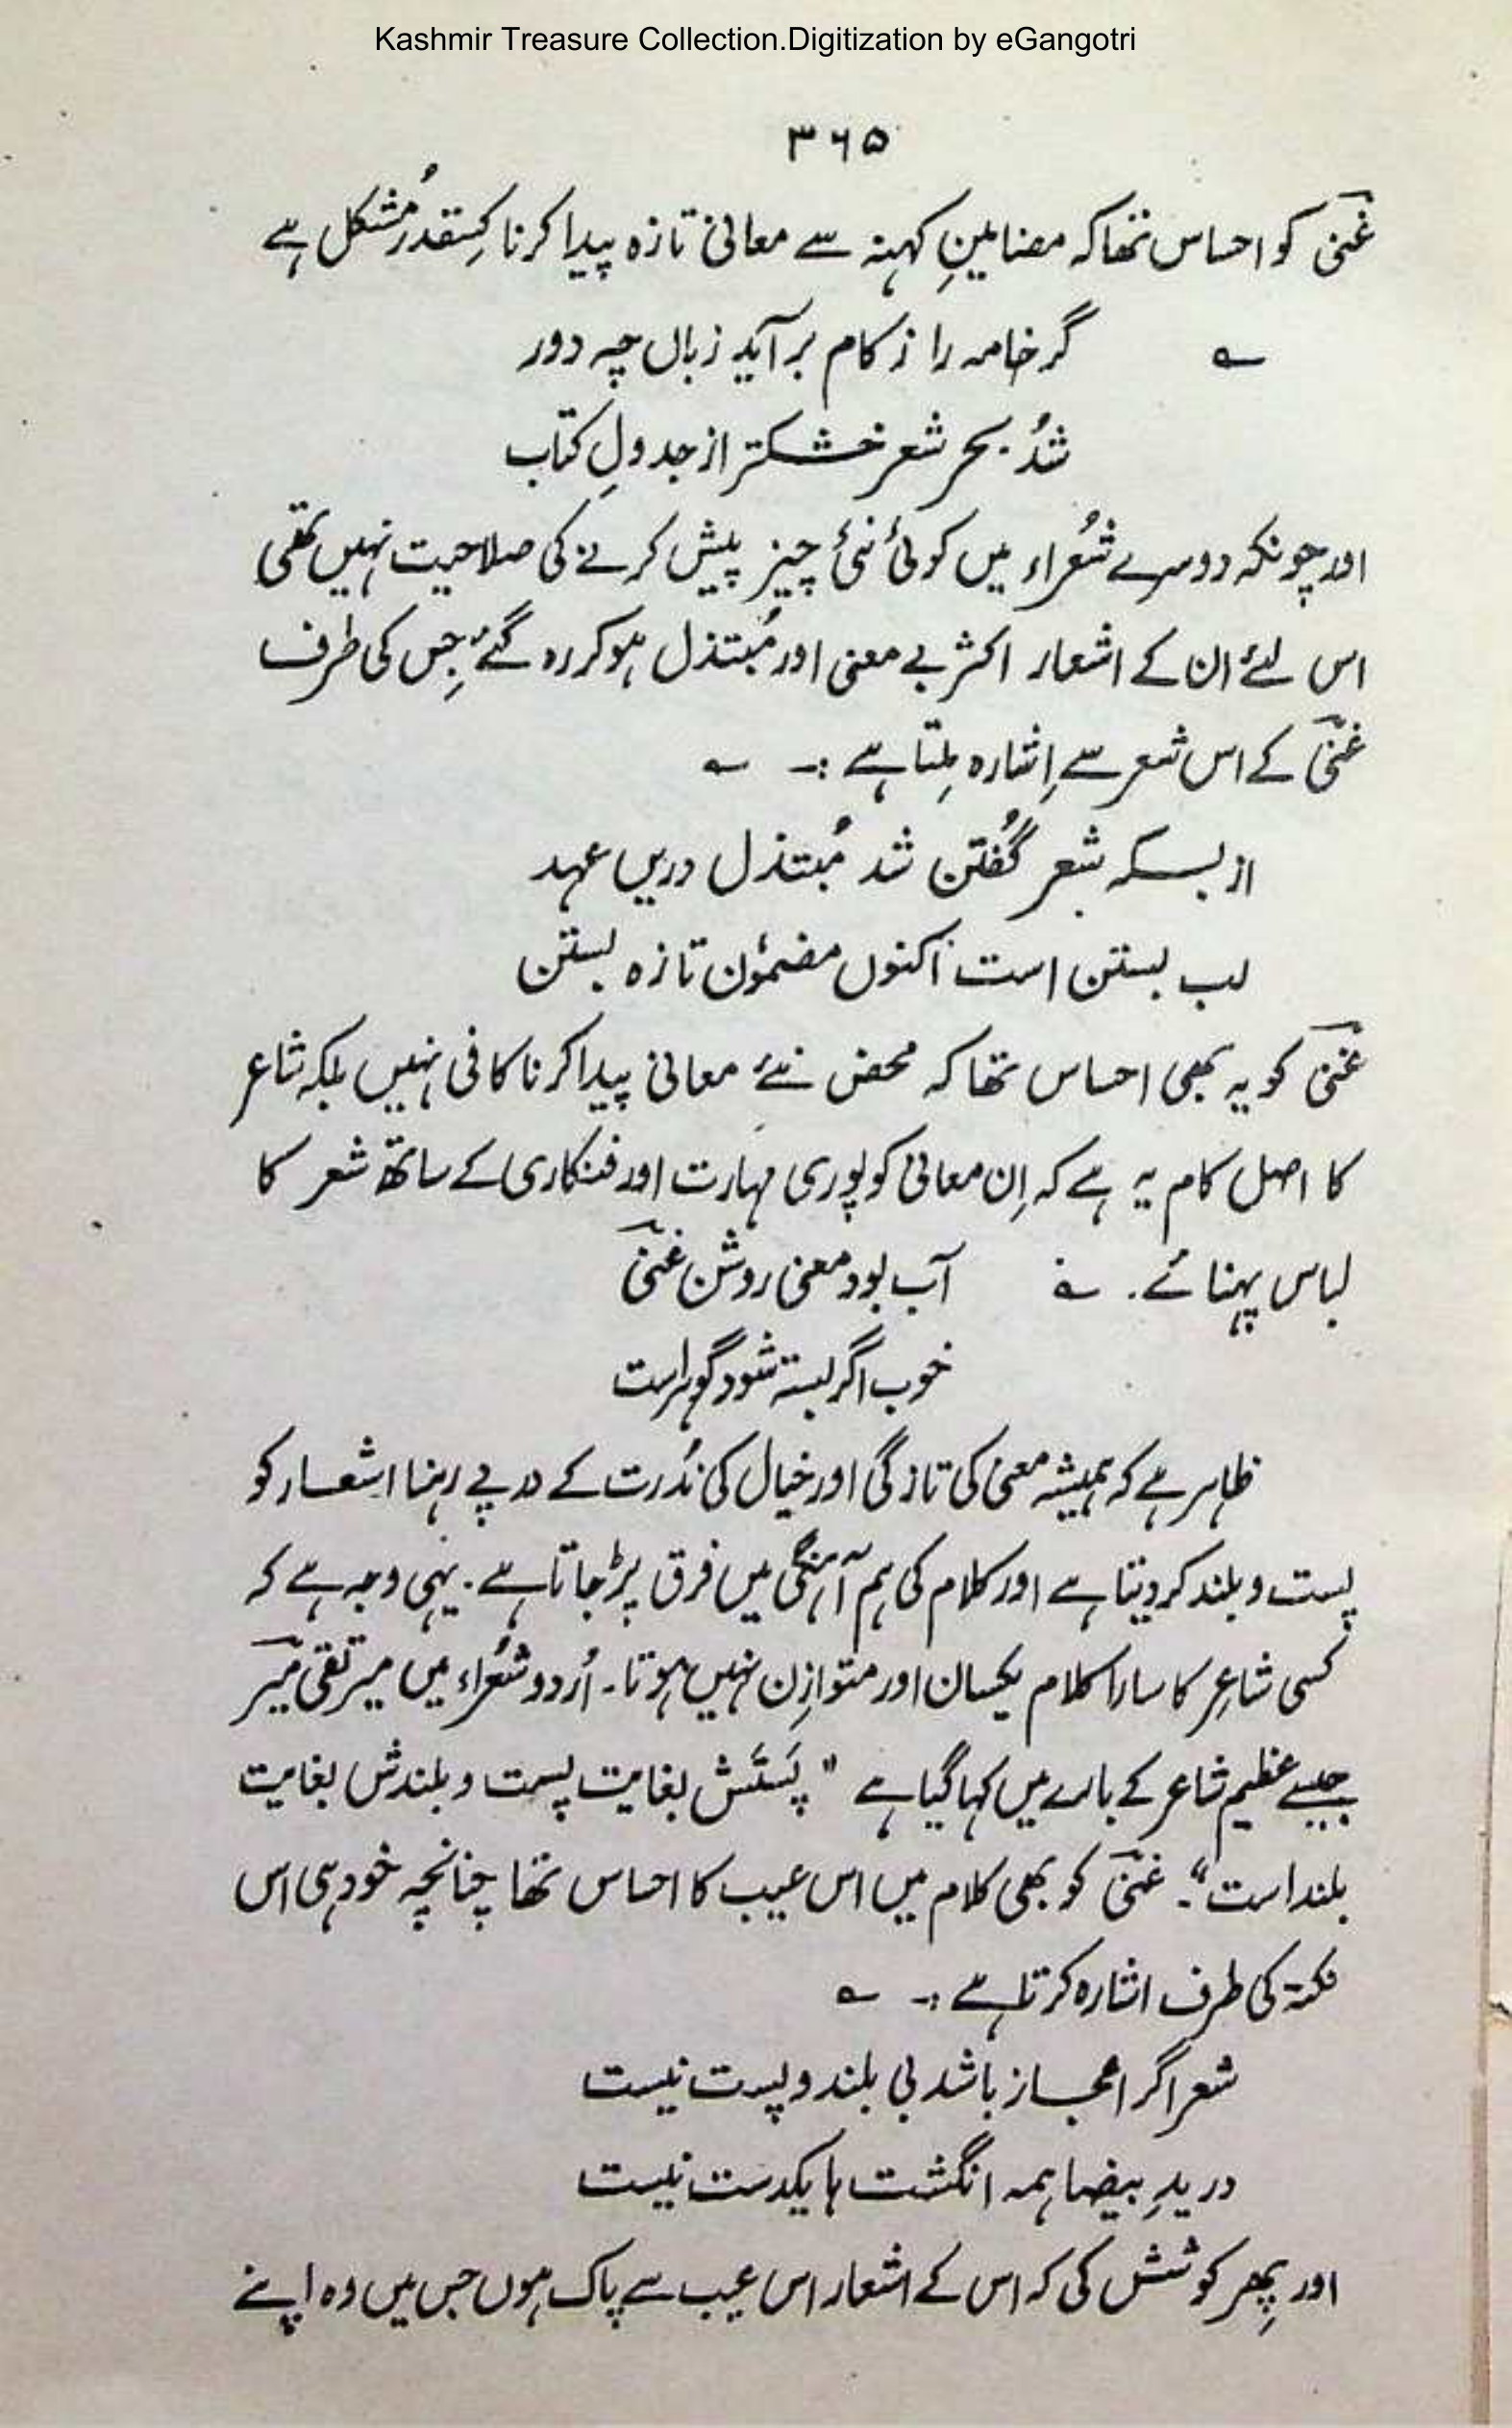 Kashmir Treasure Collection.Digitization by eGangotri
۳۶۵
غنیؔ کو احساس تھا کہ مضامینِ کہنہ سے معانی تازہ پیدا کرنا کِسقدر مُشکل ہے
؎ گر خامہ را ز کام بر آید زباں چہ دور
شُد بحر شعر خشکتر از جدولِ کتاب
اور چونکہ دوسرے شُعراء میں کوئی نئی چیز پیش کرنے کی صلاحیت نہیں تھی
اس لئے ان کے اشعار اکثر بے معنی اور مُبتذل ہو کر رہ گئے جِس کی طرف
غنیؔ کے اس شعر سے اِشارہ مِلتا ہے :۔ ؎
از بسکہ شِعر گُفتن شد مُبتذل دریں عہد
لب بستن است اکنوں مضمُون تازہ بستن
غنیؔ کو یہ بھی احساس تھا کہ محض نئے معانی پیدا کرنا کافی نہیں بلکہ شاعر
کا اصل کام یہ ہے کہ اِن معانی کو پوری مہارت اور فنکاری کے ساتھ شعر کا
لباس پہنائے۔ ؎ آب بود معنی روشن غنیؔ
خوب اگر بستہ شود گوہراست
ظاہر ہے کہ ہمیشہ معنی کی تازگی اور خیال کی نُدرت کے درپے رہنا اشعار کو
پست و بلند کر دیتا ہے اور کلام کی ہم آہنگی میں فرق پڑ جاتا ہے۔ یہی وجہ ہے کہ
کسی شاعِر کا سارا کلام یکساں اور متوازِن نہیں ہوتا۔ اُردو شُعراء میں میر تقی میرؔ
جیسے عظیم شاعر کے بارے میں کہا گیا ہے "پَستَش بغایت پست و بلندش بغایت
بلند است"۔ غنیؔ کو بھی کلام میں اس عیب کا احساس تھا چنانچہ خود ہی اس
نکتہ کی طرف اشارہ کرتا ہے :۔ ؎
شعر اگر اعجاز باشد بی بلند و پست نیست
در یدِ بیضا ہمہ انگشت ہا یکدست نیست
اور پِھر کوشش کی کہ اس کے اشعار اس عیب سے پاک ہوں جس میں وہ اپنے